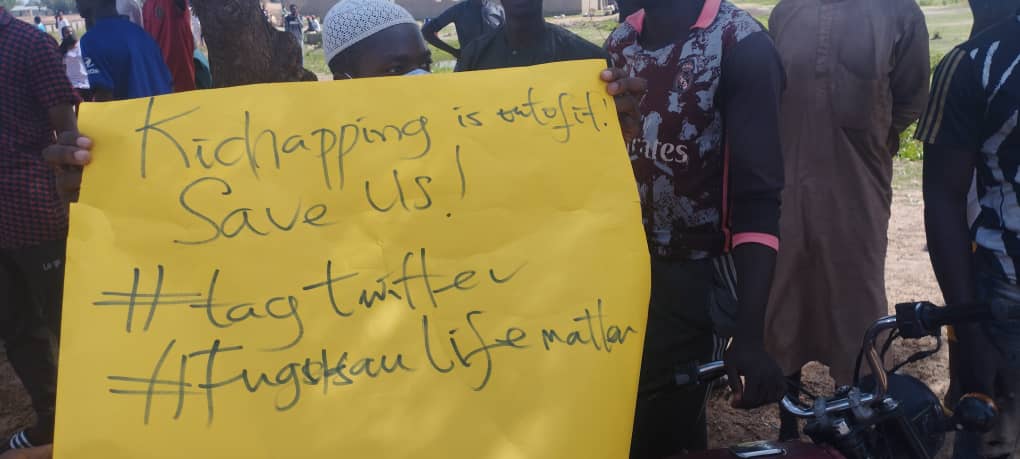 Kidnapping is out of it!
Save us!
#tag twitter
#Fugusau life matter
rates